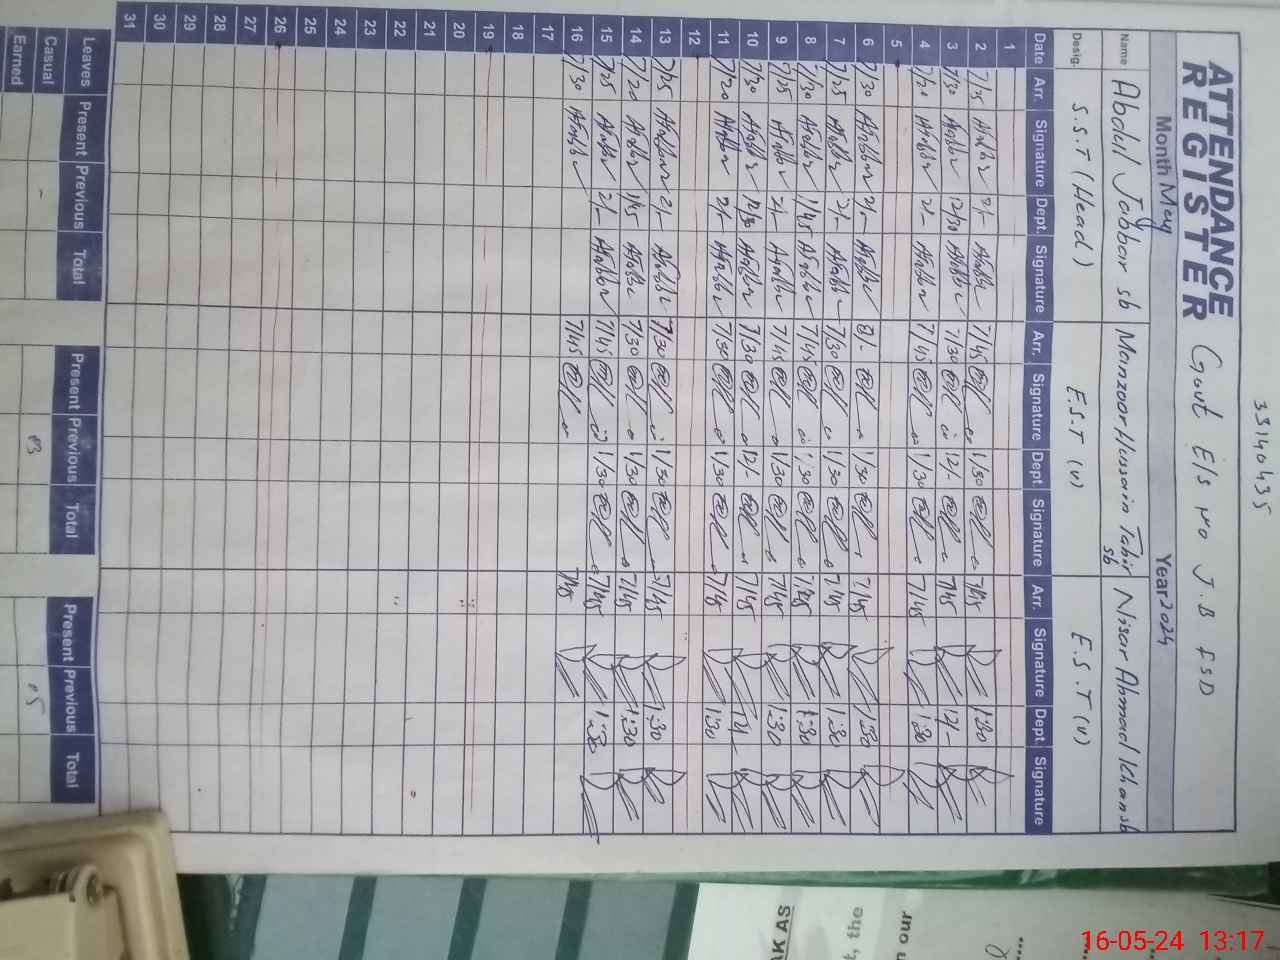 33140435
ATTENDANCE
REGISTER
Govt E/S No J.B FSD
Month May Year 2024
Name Abdul Jabbar sb Manzoor Hussain Tahir sb Nisar Ahmad Khan sb
Desig. S.S.T (Head) E.S.T (v) E.S.T (v)
Date Arr. Signature Dept. Signature Arr. Signature Dept. Signature Arr. Signature Dept. Signature
1
2 7/25 2/- 7/45 1/30 7/45 1:30
3 7/30 12/30 7/30 12/- 7/45 12/-
4 7/20 2/- 7/45 1/30 7/45 1:30
5
6 7/30 2/- 8/- 1/30 7/45 1:30
7 7/25 2/- 7/30 1/30 7/45 1:30
8 7/30 1/45 7/45 1/30 7/45 1:30
9 7/25 2/- 7/45 1/30 7/45 1:30
10 7/30 12/30 7/30 12/- 7/45 12/-
11 7/20 2/- 7/30 1/30 7/45 1:30
12
13 7/25 2/- 7/30 1/30 7/45 1:30
14 7/20 1/45 7/30 1/30 7/45 1:30
15 7/25 2/- 7/45 1/30 7/45 1:30
16 7/30 7/45 7/45
17
18
19
20
21
22
23
24
25
26
27
28
29
30
31
Leaves Present Previous Total Present Previous Total Present Previous Total
Casual - 03 05
Earned
AK AS
t, the
our
16-05-24 13:17